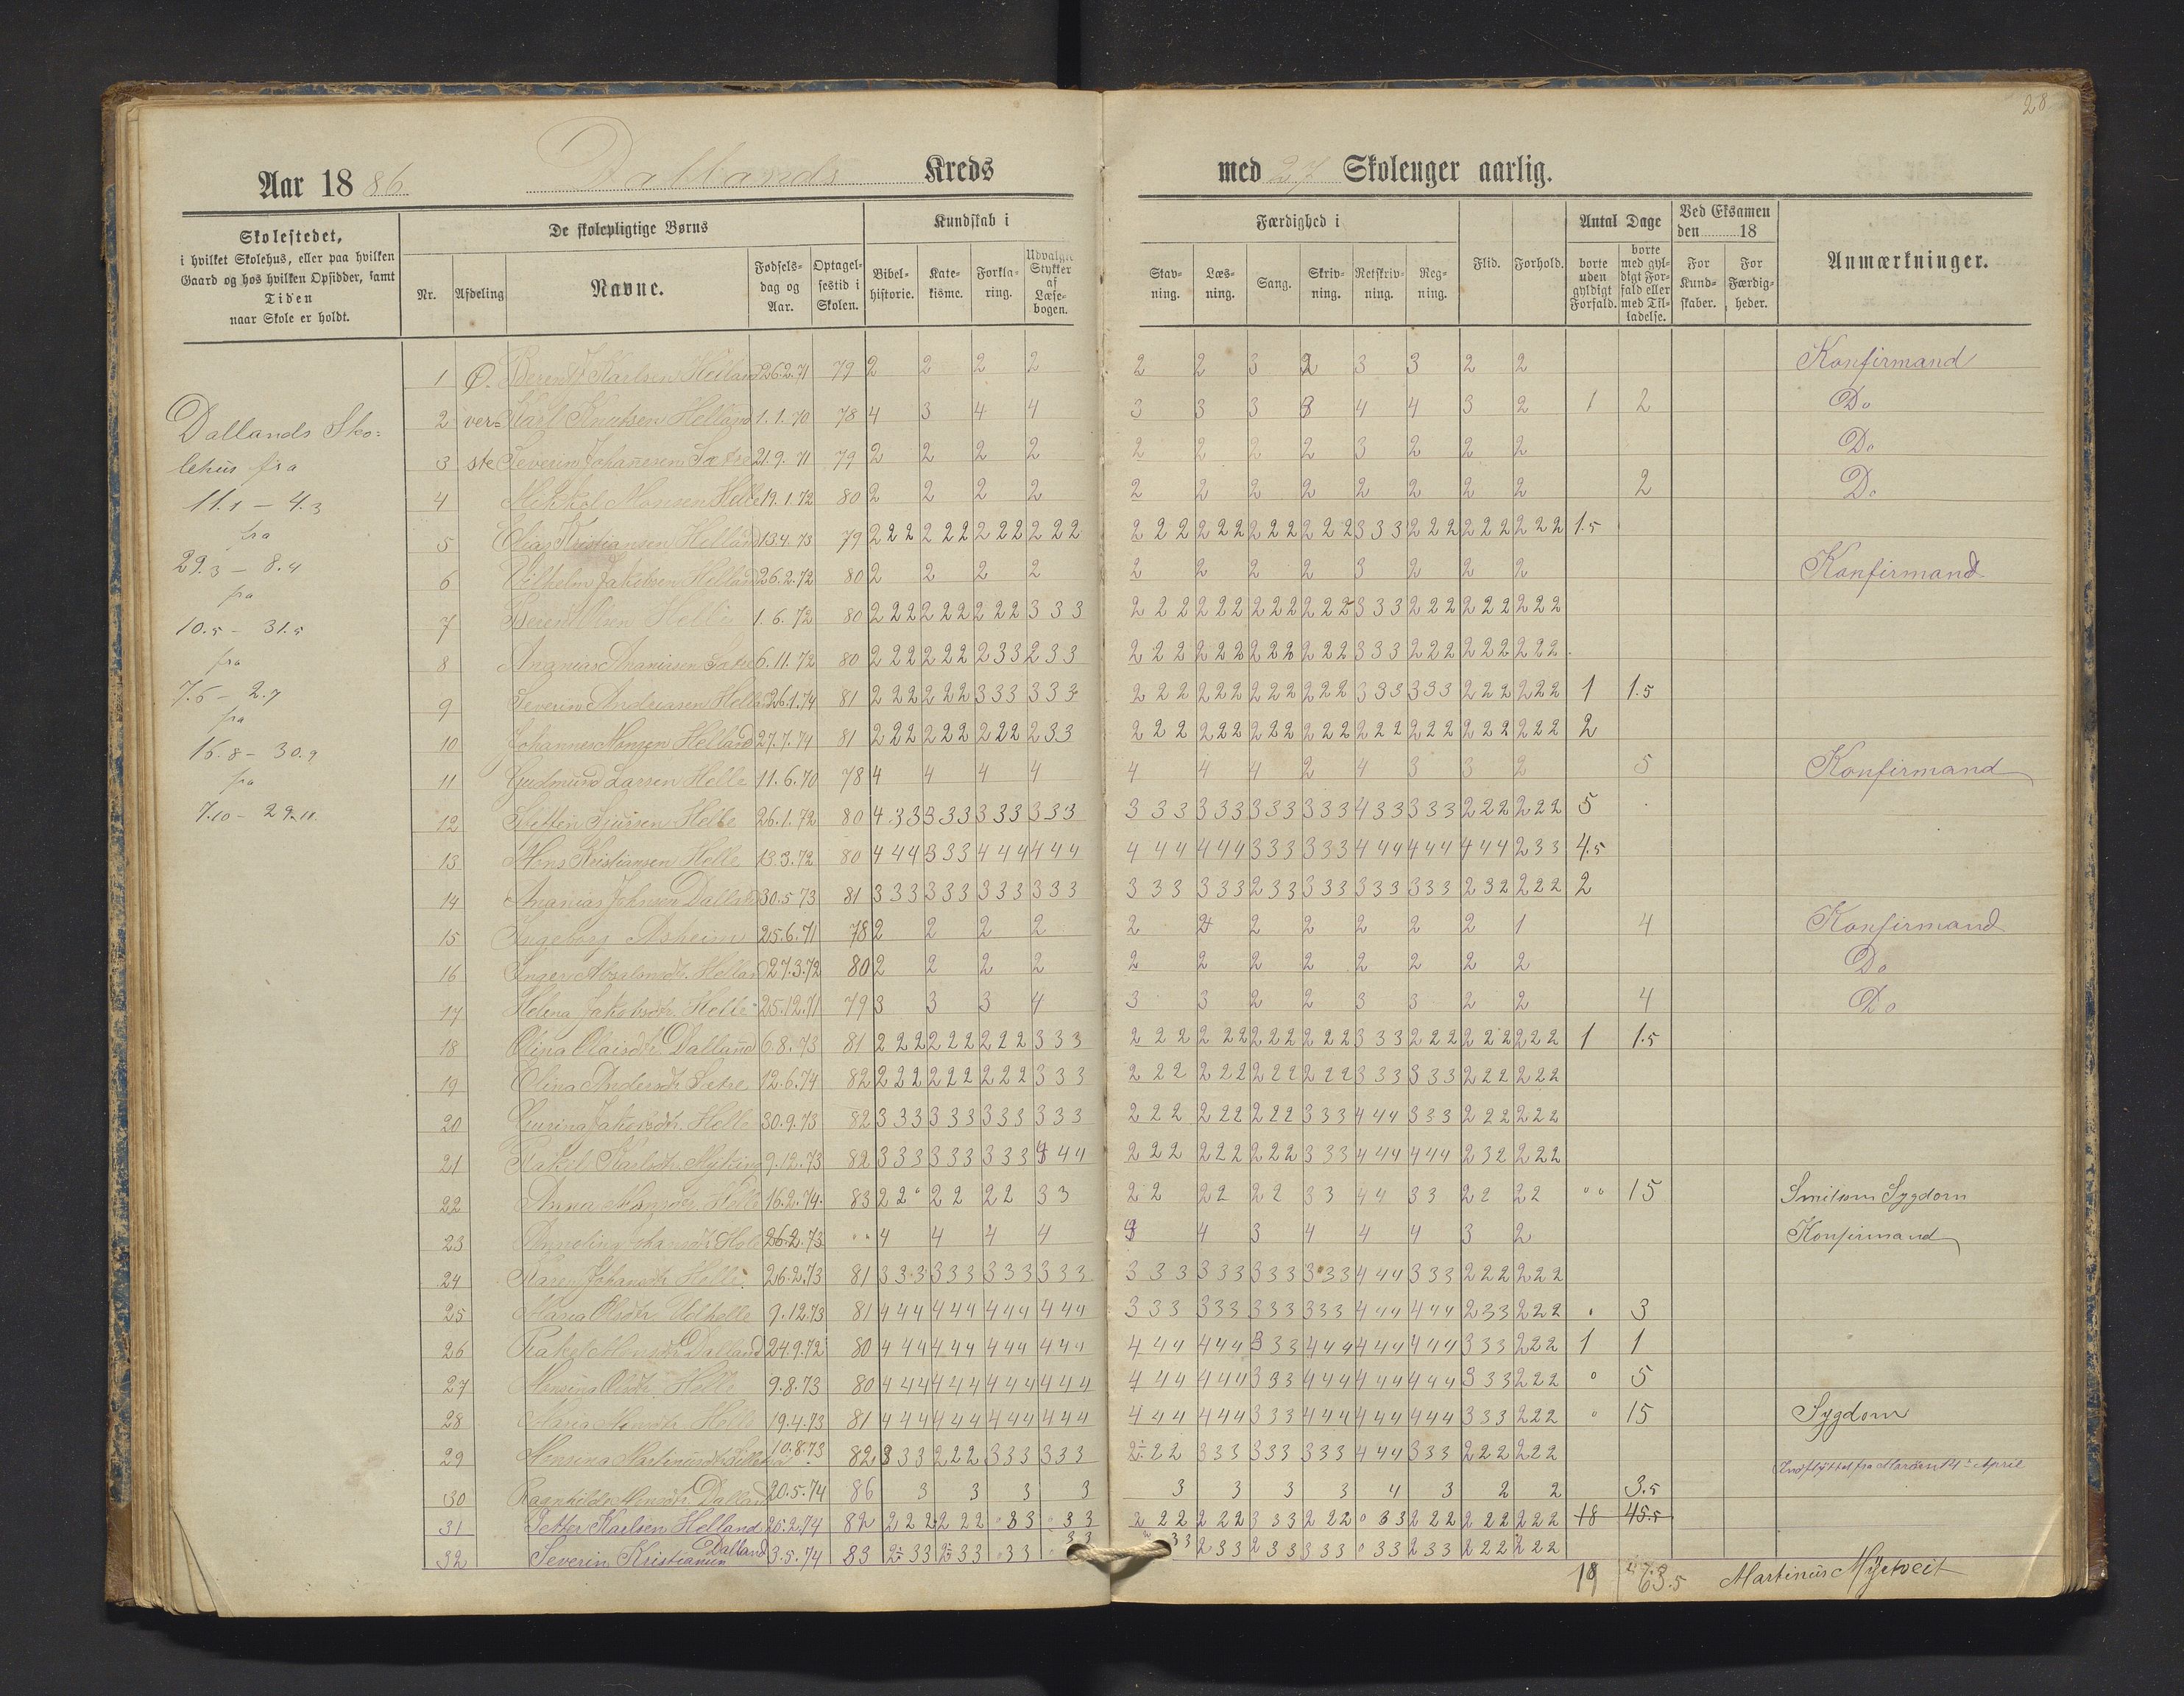 28
Aar 1886 Dallands Kreds med 27 Skolenger aarlig.
Skolestedet,
i hvilket Skolehus, eller paa hvilken
Gaard og hos hvilken Opsidder, samt
Tiden
naar Skole er holdt.
De skolepligtige Børns
Nr. Afdeling Navne. Fødselsdag og Aar. Optagelsestid i Skolen.
Kundskab i
Bibelhistorie. Katekisme. Forklaring. Udvalgte Stykker af Læsebogen.
Færdighed i
Stavning. Læsning. Sang. Skrivning. Retskrivning. Regning.
Flid. Forhold.
Antal Dage
borte uden gyldigt Forfald. borte med gyldigt Forfald eller med Tilladelse.
Ved Eksamen den 18
For Kundskaber. For Færdigheder.
Anmærkninger.
Dallands Sko-
lehus fra
11.1 — 4.3
fra
29.3 — 8.4
fra
10.5 — 31.5
fra
7.6 — 2.7
fra
16.8 — 30.9
fra
7.10 — 29.11
1 Ø. Berent Karlsen Helland 26.2.71 79 2 2 2 2 2 2 3 2 3 3 2 2 Konfirmand
2 ver= Karl Knutsen Helland 1.1.70 78 4 3 4 4 3 3 3 3 4 4 3 2 1 2 Do
3 ste Severin Johanesen Sætre 21.9.71 79 2 2 2 2 2 2 2 2 3 2 2 2 Do
4 Mikkel Monsen Helle 19.1.72 80 2 2 2 2 2 2 2 2 2 2 2 2 2 Do
5 Elias Kristiansen Helland 13.4.73 79 222 222 222 222 222 222 222 222 333 222 222 222 1.5
6 Vilhelm Jakobsen Helland 26.2.72 80 2 2 2 2 2 2 2 2 3 2 2 2 Konfirmand
7 Berent Olsen Helle 1.6.72 80 222 222 222 333 222 222 222 222 333 222 222 222
8 Ananias Ananiasen Sætre 6.11.72 80 222 222 233 233 222 222 222 222 333 222 222 222
9 Severin Andreasen Helland 26.1.74 81 222 222 333 333 222 222 222 222 333 333 222 222 1 1.5
10 Johannes Monsen Helland 27.7.74 81 222 222 222 233 222 222 222 222 222 222 222 222 2
11 Gudmund Larsen Helle 11.6.70 78 4 4 4 4 4 4 4 2 4 3 3 2 5 Konfirmand
12 Sjursen Helle 26.1.72 80 433 333 333 333 333 333 333 333 433 333 222 222 5
13 Mons Kristiansen Helle 13.3.72 80 444 333 444 444 444 444 333 333 444 444 444 233 4.5
14 Ananias Johnsen Dalland 30.5.73 81 333 333 333 333 333 333 233 333 333 333 232 222 2
15 Ingeborg Asheim 25.6.71 78 2 2 2 2 2 2 2 2 2 2 2 1 4 Konfirmand
16 Inger Absalonsdtr. Helland 27.3.72 80 2 2 2 2 2 2 2 2 2 2 2 2 Do
17 Helena Jakobsdtr. Helle 25.12.71 79 3 3 3 4 3 3 2 2 3 3 2 2 4 Do
18 Olina Olaisdtr. Dalland 6.8.73 81 222 222 222 333 222 222 222 222 333 222 222 222 1 1.5
19 Olina Andersdtr. Sætre 12.6.74 82 222 222 222 333 222 222 222 222 333 333 222 222
20 Jakobsdtr. Helle 30.9.73 82 333 333 333 333 222 222 222 333 444 333 222 222
21 Rakel Karlsdtr. Myking 9.12.73 82 333 333 333 444 222 222 222 333 444 444 232 222
22 Anna Monsdtr. Helle 16.2.74 83 22 22 22 33 22 22 22 33 44 33 22 22 " 15 Smitsom Sygdom
23 Johansdtr. Helle 26.2.73 " 4 4 4 4 3 4 3 4 4 4 3 2 Konfirmand
24 Karen Johansdtr. Helle 26.2.73 81 333 333 333 333 333 333 333 333 444 333 222 222
25 Maria Olsdtr. Udhelle 9.12.73 81 444 444 444 444 333 333 333 333 444 444 233 222 " 3
26 Rakel Monsdtr. Dalland 24.9.72 80 444 444 444 444 444 444 333 444 444 444 333 222 1 1
27 Monsina Olsdtr. Helle 9.8.73 80 444 444 444 444 444 444 333 444 444 444 333 222 " 5
28 Maria Monsdtr. Helle 19.4.73 81 444 444 444 444 444 444 333 444 444 444 333 222 " 15 Sygdom
29 Monsina Martinusdtr. 10.8.73 82 333 222 333 333 222 333 333 333 444 333 222 222
30 Ragnhilda Monsdtr. Dalland 20.5.74 86 3 3 3 3 3 3 3 3 4 3 2 2 3.5 Indflyttet fra 14de April
31 Petter Karlsen Helland 25.2.74 82 222 222 "33 "33 222 222 333 222 "33 222 222 222 18 45.5
32 Severin Kristiansen Dalland 3.5.74 83 233 233 "33 "33 233 233 233 333 "33 233 222 222
19 63.5 Martinus Myetveit